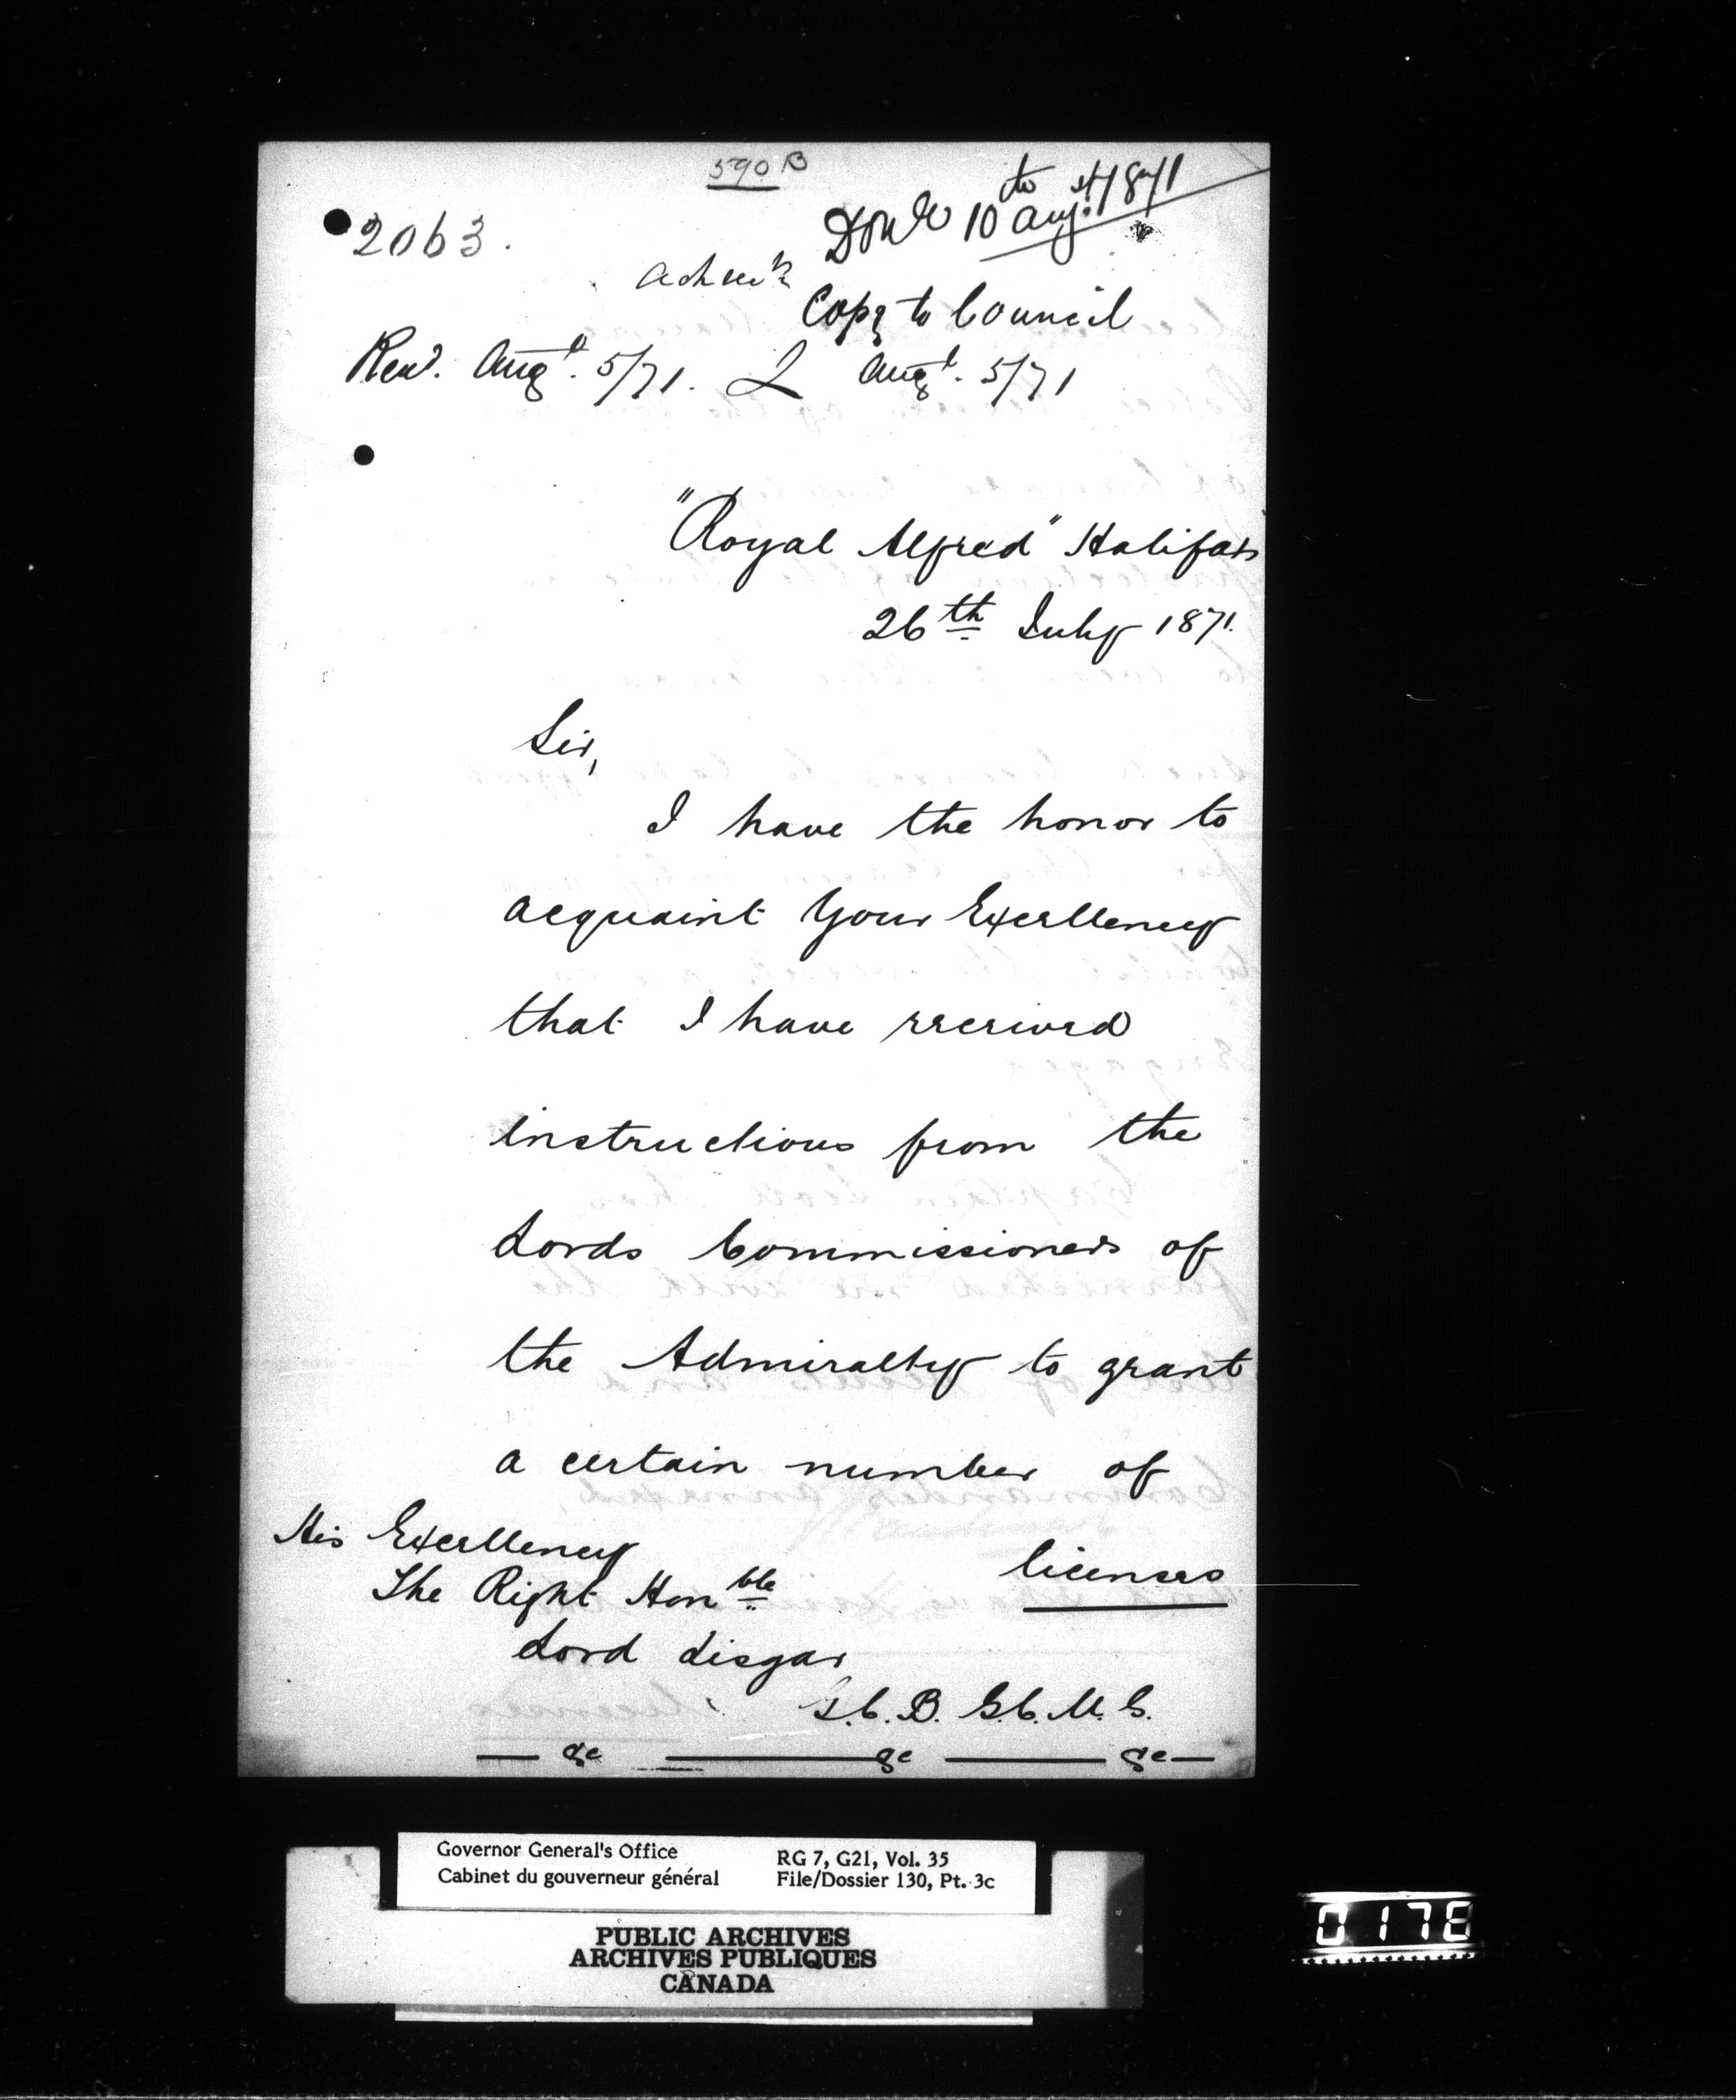 590 B
2063.
Done 10th Augst 1871
Copy to Council
Recd. Augt. 5/71. L Augt. 5/71
"Royal Alfred" Halifax
26th July 1871.
Sir,
I have the honor to
acquaint Your Excellency
that I have received
instructions from the
Lords Commissioners of
the Admiralty to grant
a certain number of
licenses
His Excellency
The Right Honble
Lord Lisgar
G.C.B. G.C.M.G.
&c &c &c
Governor General's Office
Cabinet du gouverneur général
RG 7, G21, Vol. 35
File/Dossier 130, Pt. 3c
PUBLIC ARCHIVES
ARCHIVES PUBLIQUES
CANADA
0178